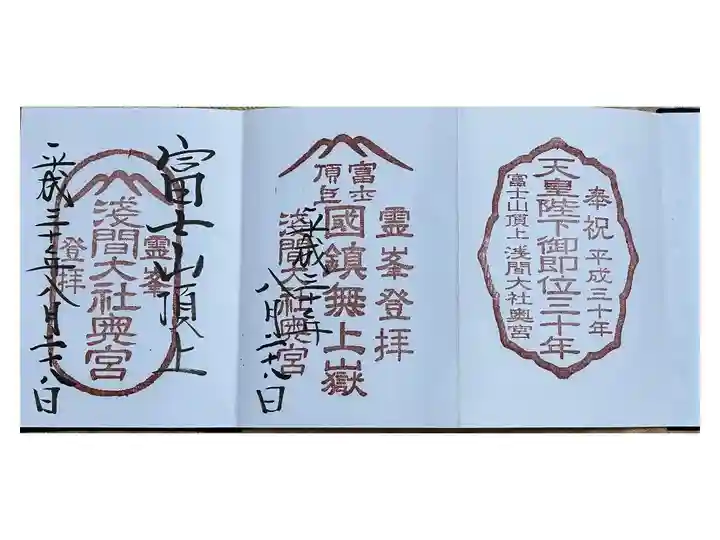 奉祝 平成三十年
天皇陛下御即位三十年
富士山頂上 淺間大社奥宮
霊峯登拝
富士
頂上
國鎮無上嶽
淺間大社奥宮
平成三十年
八月
日
富士山頂上
霊峯
淺間大社奥宮
登拝
平成三十年八月二十八日